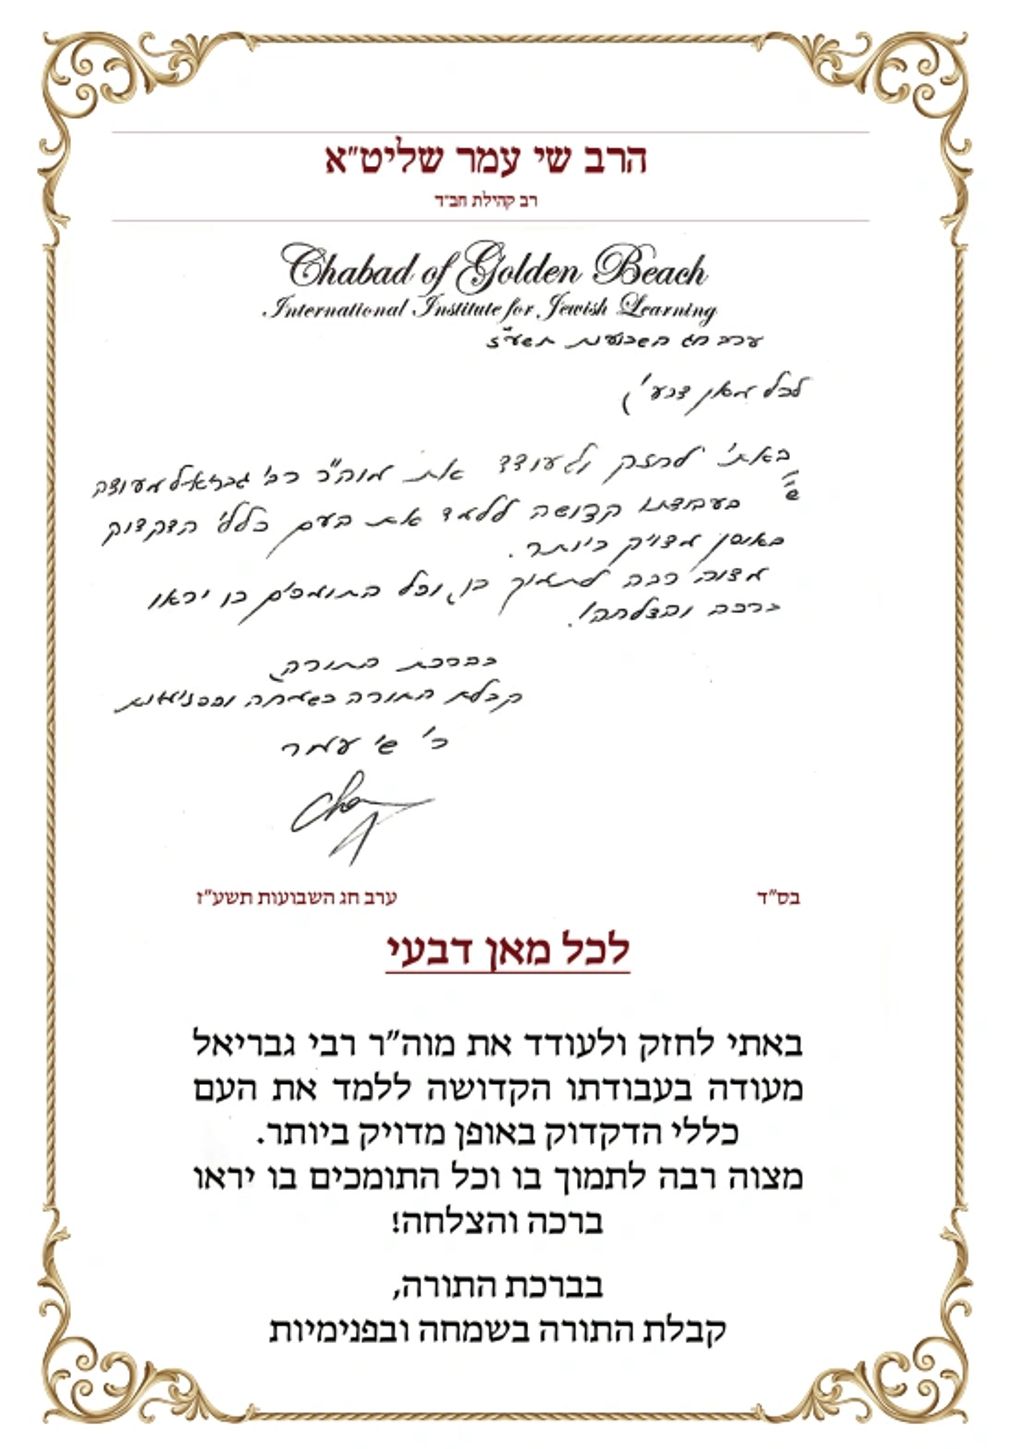 הרב שי עמר שליט"א
רב קהילת חב"ד
Chabad of Golden Beach
International Institute for Jewish Learning
ערב חג השבועות תשע"ז
לכל מאן דבעי,
באתי לחזק ולעודד את מוה"ר רבי גבריאל מעודה
שי'
בעבודתו קדושה ללמד את העם כללי הדקדוק
באופן מדויק ביותר.
מצוה רבה לתמוך בו, וכל התומכים בו יראו
ברכה והצלחה!
בברכת התורה,
קבלת התורה בשמחה ובפנימיות
ר' שי עמר
בס"ד
ערב חג השבועות תשע"ז
לכל מאן דבעי
באתי לחזק ולעודד את מוה"ר רבי גבריאל
מעודה בעבודתו הקדושה ללמד את העם
כללי הדקדוק באופן מדויק ביותר.
מצוה רבה לתמוך בו וכל התומכים בו יראו
ברכה והצלחה!
בברכת התורה,
קבלת התורה בשמחה ובפנימיות